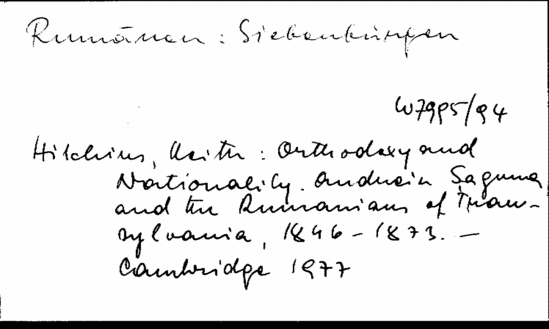 Rumänen: Siebenbürgen
W7995/94
Hitchins, Keith: Orthodoxy and
Nationality. Andrein Şaguna
and the Rumanians of Tran-
sylvania, 1846-1873. -
Cambridge 1977